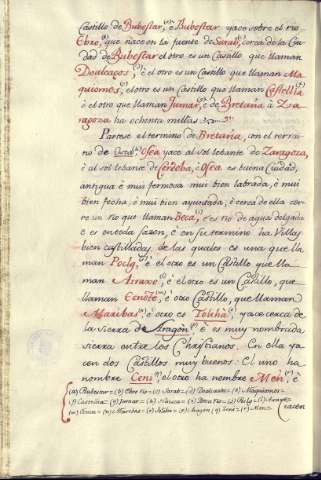 Castillo de Bubestar, é Bubestar yace sobre el rio
Ebre, que nace en la fuente de Sarab, cerca de la Ciu-
dad de Bubestar el otro es un Casillo que llaman
Doalcaços, é el otro es un Castillo que llaman Ma
quiomes, el otro es un Castillo que llaman Castellia
é el otro que llaman Jumar, é de Bretaña à Zara-
goza ha ochenta millas
Partese el termino de Bretaña, con el termi-
no de Osca, Osca yace al sol lebante de Zaragoza,
é al sol lebante de Cordoba, é Osca es buena Ciudad,
antigua é mui fermosa mui bien labrada, é mui
bien fecha, é mui bien ayuntada, é cerca de ella cor-
re un rio que llaman Beca, é es rio de agua delgada
é es en toda sazon, é en su termino ha Villas
bien castilladas de las quales es una que lla
man Polg, é el otro es un Castillo que lla-
man Arraxe, é el otro es un Castillo, que
llaman Ecnote, é otro Castillo, que llaman
Maribas, é otro es Tolchá, yace cerca de
la sierra de Aragón, é es muy nombrada
sierra entre los Chriptianos. En ella ya
cen dos Castillos muy buenos. El uno ha
nombre Ceni, el otro ha nombre Men, é
eacen